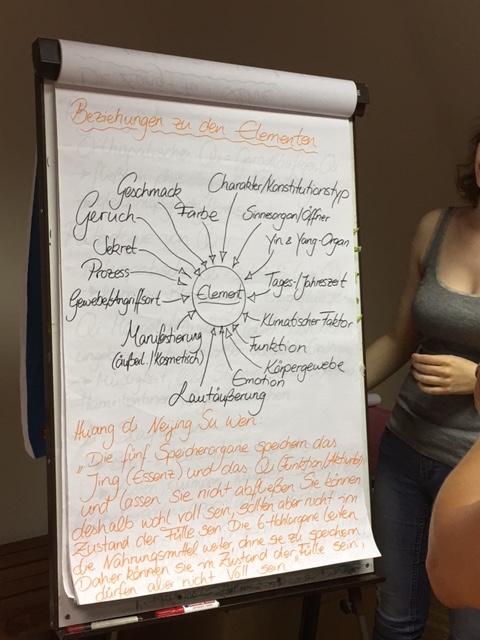 Beziehungen zu den Elementen
Geschmack
Charakter/Konstitutionstyp
Geruch
Farbe
Sinnesorgan/Öffner
Sekret
Yin & Yang-Organ
Prozess
Element
Tages-/Jahreszeit
Gewebe/Angriffsort
Klimatischer Faktor
Manifestierung
(äußerl./kosmetisch)
Funktion
Körpergewebe
Emotion
Lautäußerung
Huang di Neijing Su Wen:
"Die fünf Speicherorgane speichern das
Jing (Essenz) und das Qi (Funktion/Aktivität)
und lassen sie nicht abfließen Sie können
deshalb wohl voll sein, sollten aber nicht im
Zustand der Fülle sein Die 6 Hohlorgane leiten
die Nahrungsmittel weiter, ohne sie zu speichern.
Daher können sie im Zustand der Fülle sein,
dürfen aber nicht voll sein"